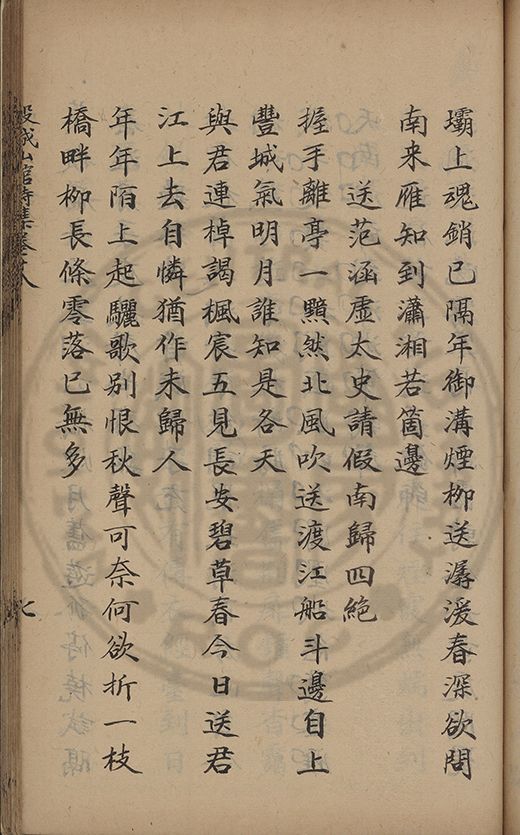 壩上魂銷已隔年御溝煙柳送潺湲春深欲問
南来雁知到瀟湘若箇邊
送范涵虛太史請假南歸四絶
握手離亭一黯然北風吹送渡江船斗邊自上
豐城氣明月誰知是各天
與君連棹謁楓宸五見長安碧草春今日送君
江上去自憐猶作未歸人
年年陌上起驪歌别恨秋聲可奈何欲折一枝
橋畔柳長條零落已無多
城山館詩集卷